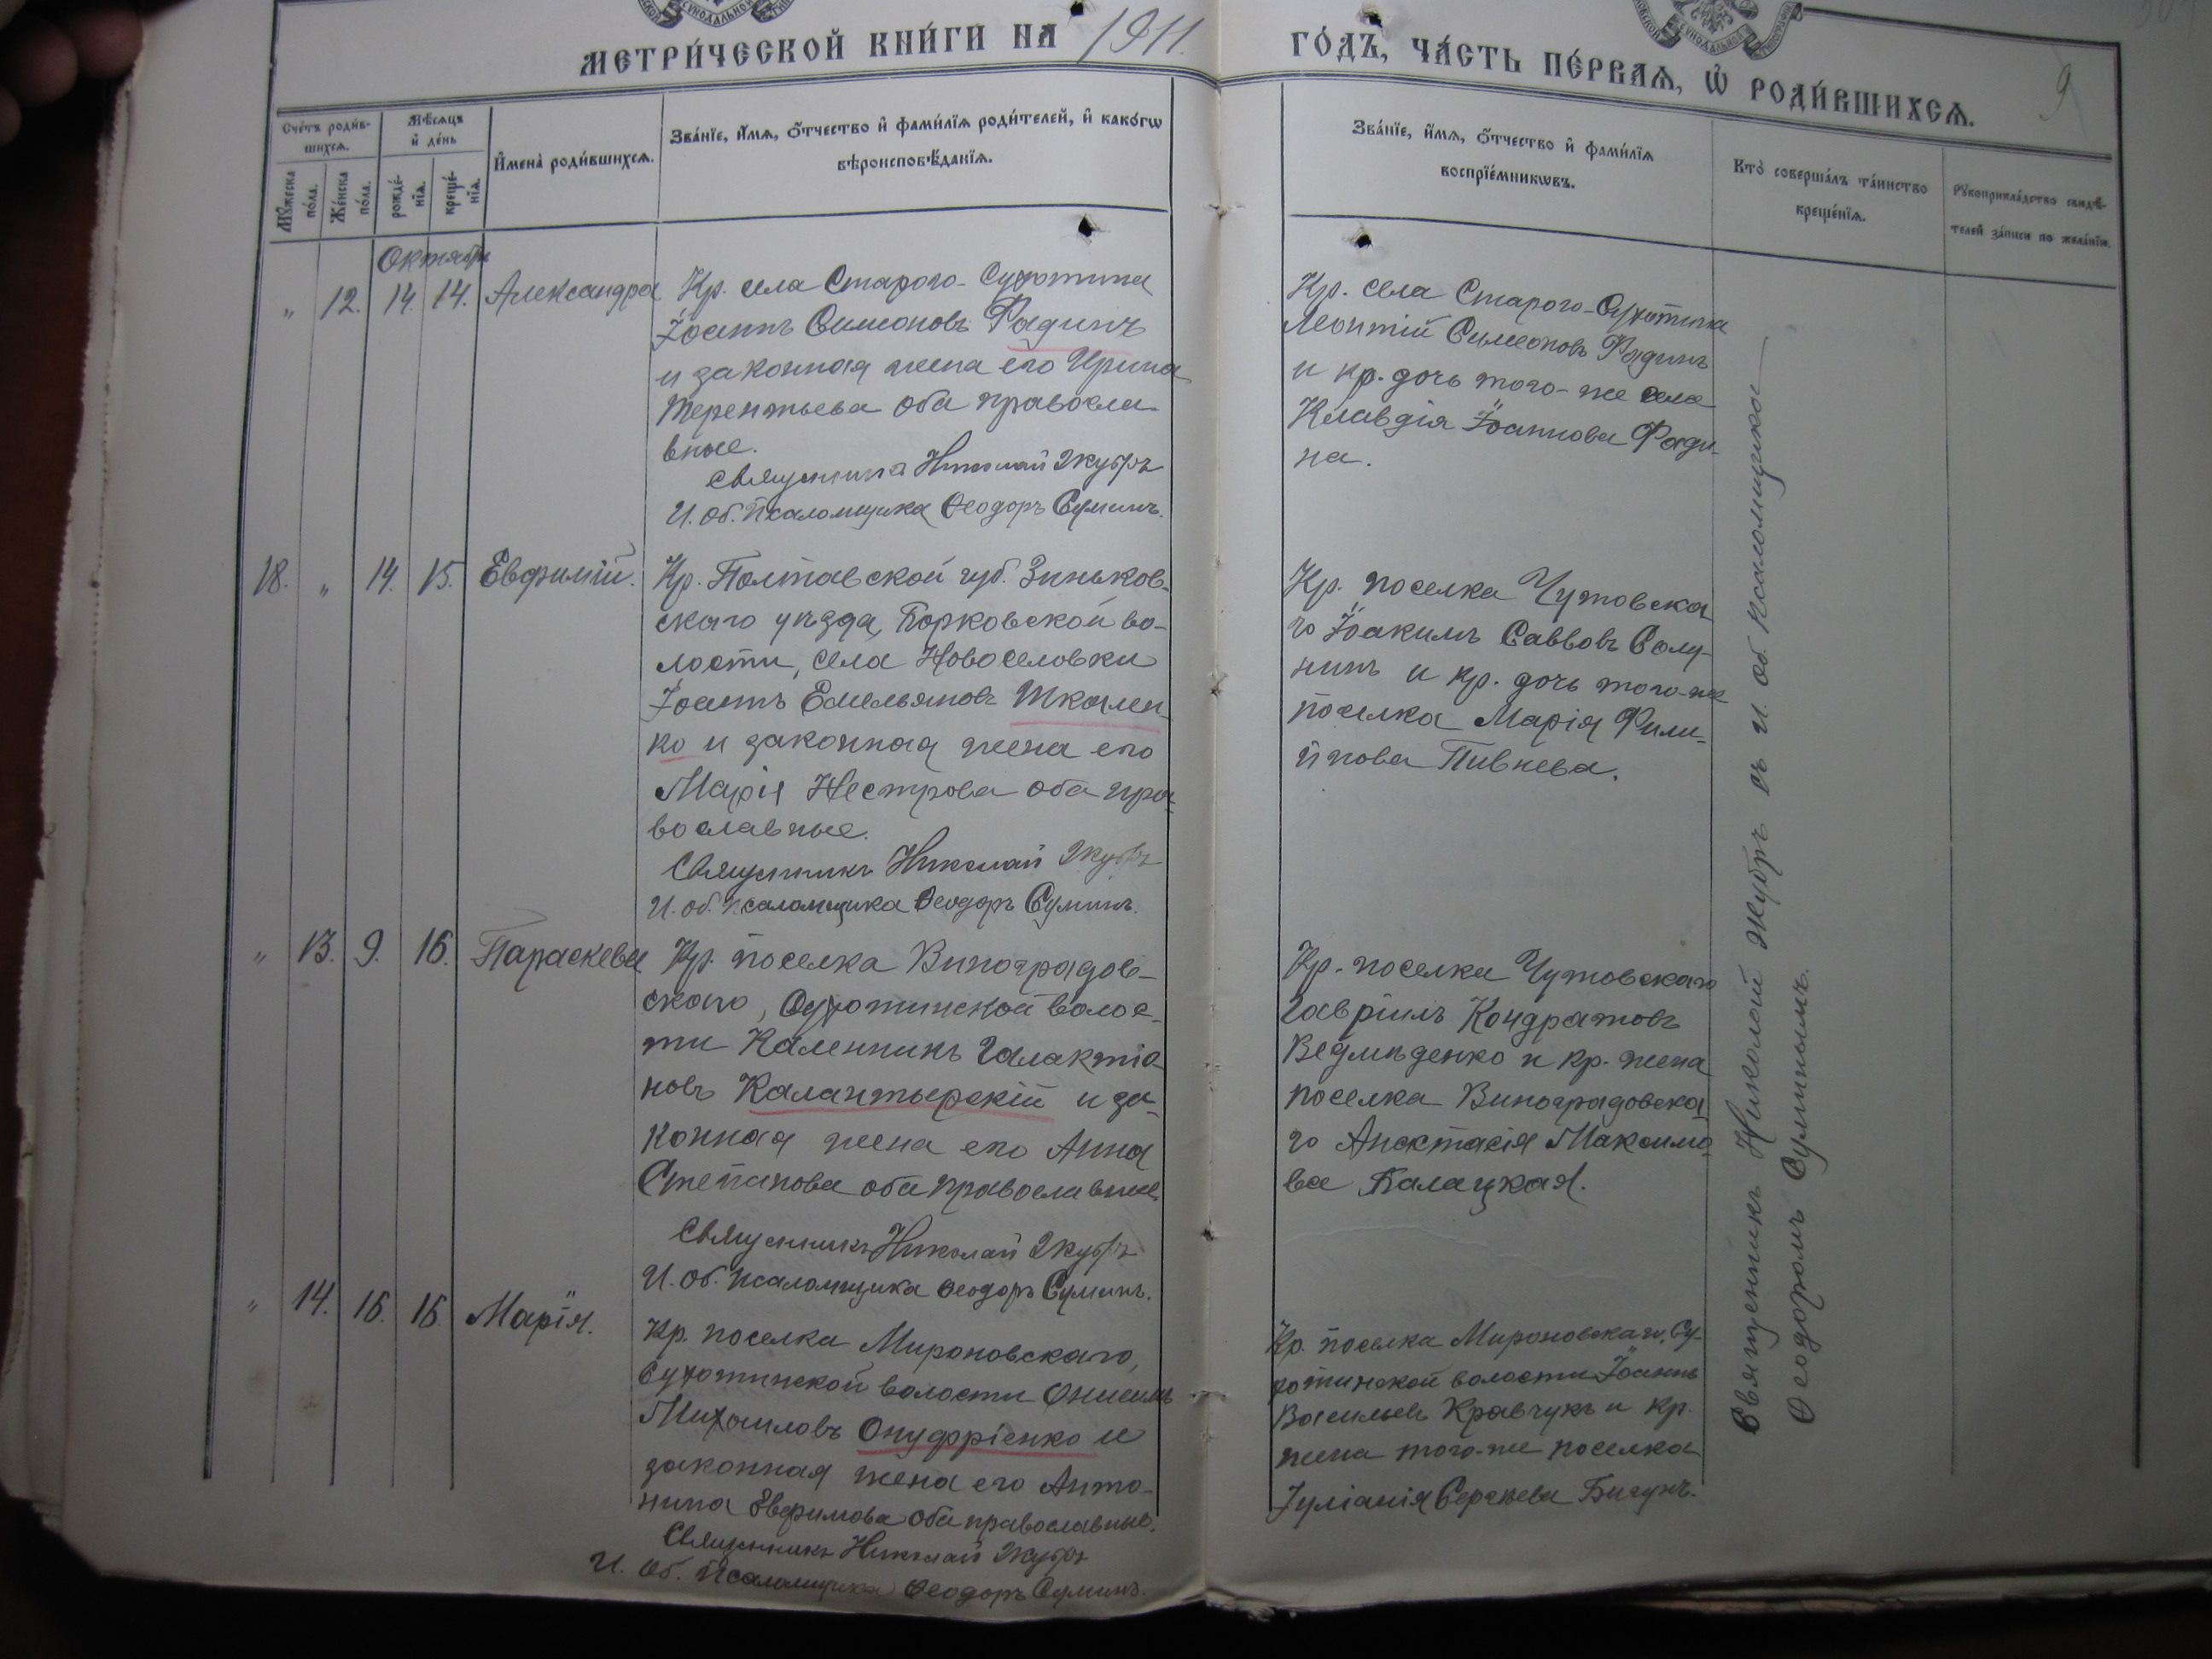 МЕТРИ́ЧЕСКОЙ КНИ́ГИ НА 1911. ГО́ДЪ, ЧА́СТЬ ПЕ́РВАѦ, Ѡ҆ РОДИ́ВШИХСѦ.
9
Сче́тъ роди́в-
шихсѧ.
Мѣ́сѧцъ
и҆ де́нь
Мꙋ́жеска
по́ла.
Же́нска
по́ла.
рожде́-
нїѧ.
креще́-
нїѧ.
И҆мена̀ роди́вшихсѧ.
Зва́нїе, и҆́мѧ, ѻ҆́тчество и҆ фами́лїѧ роди́телей, и҆ како́гѡ
вѣроисповѣ́данїѧ.
Зва́нїе, и҆́мѧ, ѻ҆́тчество и҆ фами́лїѧ
воспрїе́мникѡвъ.
Кто̀ соверша́лъ та́инство
креще́нїѧ.
Рꙋкоприкла́дство свидѣ́-
телей за́писи по жела́нїю.
Октября
" 12. 14. 14. Александра
Кр. села Старого-Сухотина
Іоаннъ Симеоновъ Фадинъ
и законная жена его Ирина
Терентьева оба правосла-
вные.
Священникъ Николай Жубръ
И. об. псаломщика Ѳеодоръ Суминъ.
Кр. села Старого-Сухотина
Леонтій Симеоновъ Фадинъ
и кр. дочь того-же села
Клавдія Іоаннова Фади-
на.
18. " 14. 15. Евфимій.
Кр. Полтавской губ. Зиньков-
скаго уѣзда, Борковской во-
лости, села Новоселовки
Іоаннъ Емельяновъ Шкален-
ко и законная жена его
Марія Нестрова оба пра-
вославные.
Священникъ Николай Жубръ
И. об. псаломщика Ѳеодоръ Суминъ.
Кр. поселка Чутовска-
го Іоакимъ Саввовъ Солу-
нинъ и кр. дочь того-же
поселка Марія Фили-
ппова Пивнева.
" 13. 9. 16. Параскева
Кр. поселка Виноградов-
скаго, Сухотинской волос-
ти Каленникъ Галактіо-
новъ Калантырскій и за-
конная жена его Анна
Степанова оба православные.
Священникъ Николай Жубръ
И. об. псаломщика Ѳеодоръ Суминъ.
Кр. поселка Чутовскаго
Гавріилъ Кондратовъ
Ведмѣденко и кр. жена
поселка Виноградовска-
го Анастасія Максимо-
ва Балацкая.
" 14. 16. 16. Марія.
Кр. поселка Мироновскаго,
Сухотинской волости Онисимъ
Михаиловъ Онуфріенко и
законная жена его Анто-
нина Евфимова оба православные.
Священникъ Николай Жубръ
И. об. псаломщика Ѳеодоръ Суминъ.
Кр. поселка Мироновскаго, Су-
хотинской волости Іоаннъ
Васильевъ Кравчукъ и кр.
жена того-же поселка
Іуліанія Сергѣева Бигунъ.
Священникъ Николай Жубръ съ и. об. псаломщика
Ѳеодоромъ Суминымъ.